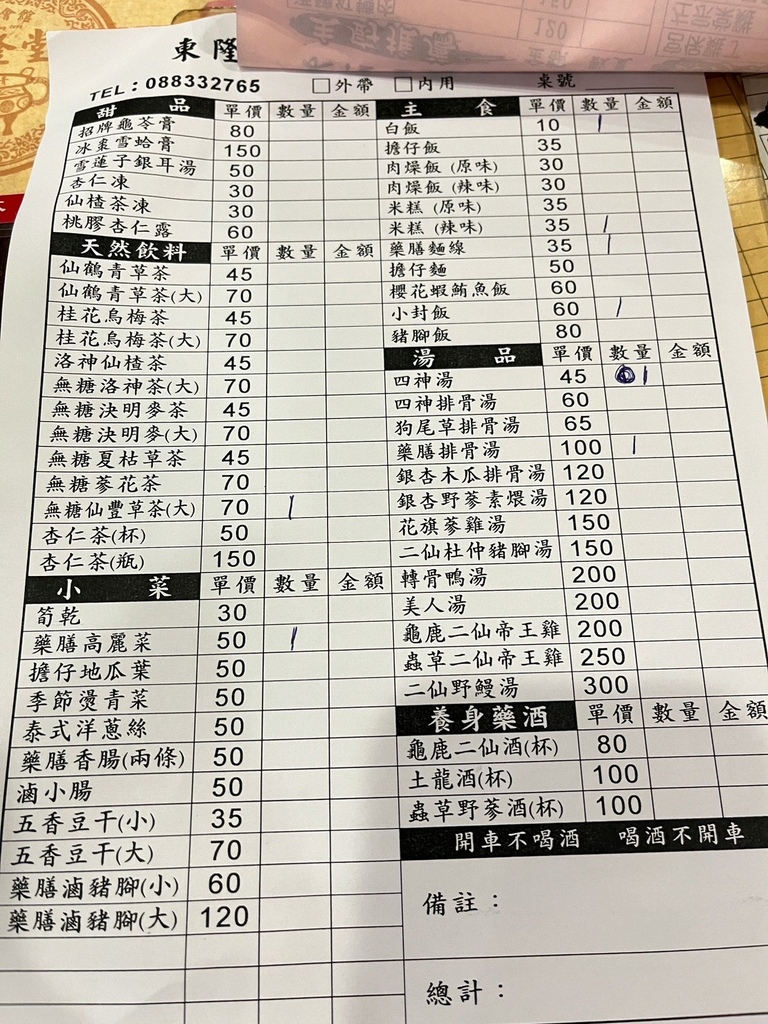 東隆
TEL：088332765 □外帶 □內用 桌號
甜品 單價 數量 金額
招牌龜苓膏 80
冰棗雪蛤膏 150
雪蓮子銀耳湯 50
杏仁凍 30
仙楂茶凍 30
桃膠杏仁露 60
天然飲料 單價 數量 金額
仙鶴青草茶 45
仙鶴青草茶(大) 70
桂花烏梅茶 45
桂花烏梅茶(大) 70
洛神仙楂茶 45
無糖洛神茶(大) 70
無糖決明麥茶 45
無糖決明麥(大) 70
無糖夏枯草茶 45
無糖蔘花茶 70
無糖仙豐草茶(大) 70 1
杏仁茶(杯) 50
杏仁茶(瓶) 150
小菜 單價 數量 金額
筍乾 30
藥膳高麗菜 50 1
擔仔地瓜葉 50
季節燙青菜 50
泰式洋蔥絲 50
藥膳香腸(兩條) 50
滷小腸 50
五香豆干(小) 35
五香豆干(大) 70
藥膳滷豬腳(小) 60
藥膳滷豬腳(大) 120
主食 單價 數量 金額
白飯 10 1
擔仔飯 35
肉燥飯 (原味) 30
肉燥飯 (辣味) 30
米糕 (原味) 35
米糕 (辣味) 35 1
藥膳麵線 35 1
擔仔麵 50
櫻花蝦鮪魚飯 60
小封飯 60 1
豬腳飯 80
湯品 單價 數量 金額
四神湯 45 1
四神排骨湯 60
狗尾草排骨湯 65
藥膳排骨湯 100 1
銀杏木瓜排骨湯 120
銀杏野蔘素煨湯 120
花旗蔘雞湯 150
二仙杜仲豬腳湯 150
轉骨鴨湯 200
美人湯 200
龜鹿二仙帝王雞 200
蟲草二仙帝王雞 250
二仙野鰻湯 300
養身藥酒 單價 數量 金額
龜鹿二仙酒(杯) 80
土龍酒(杯) 100
蟲草野蔘酒(杯) 100
開車不喝酒 喝酒不開車
備註：
總計：